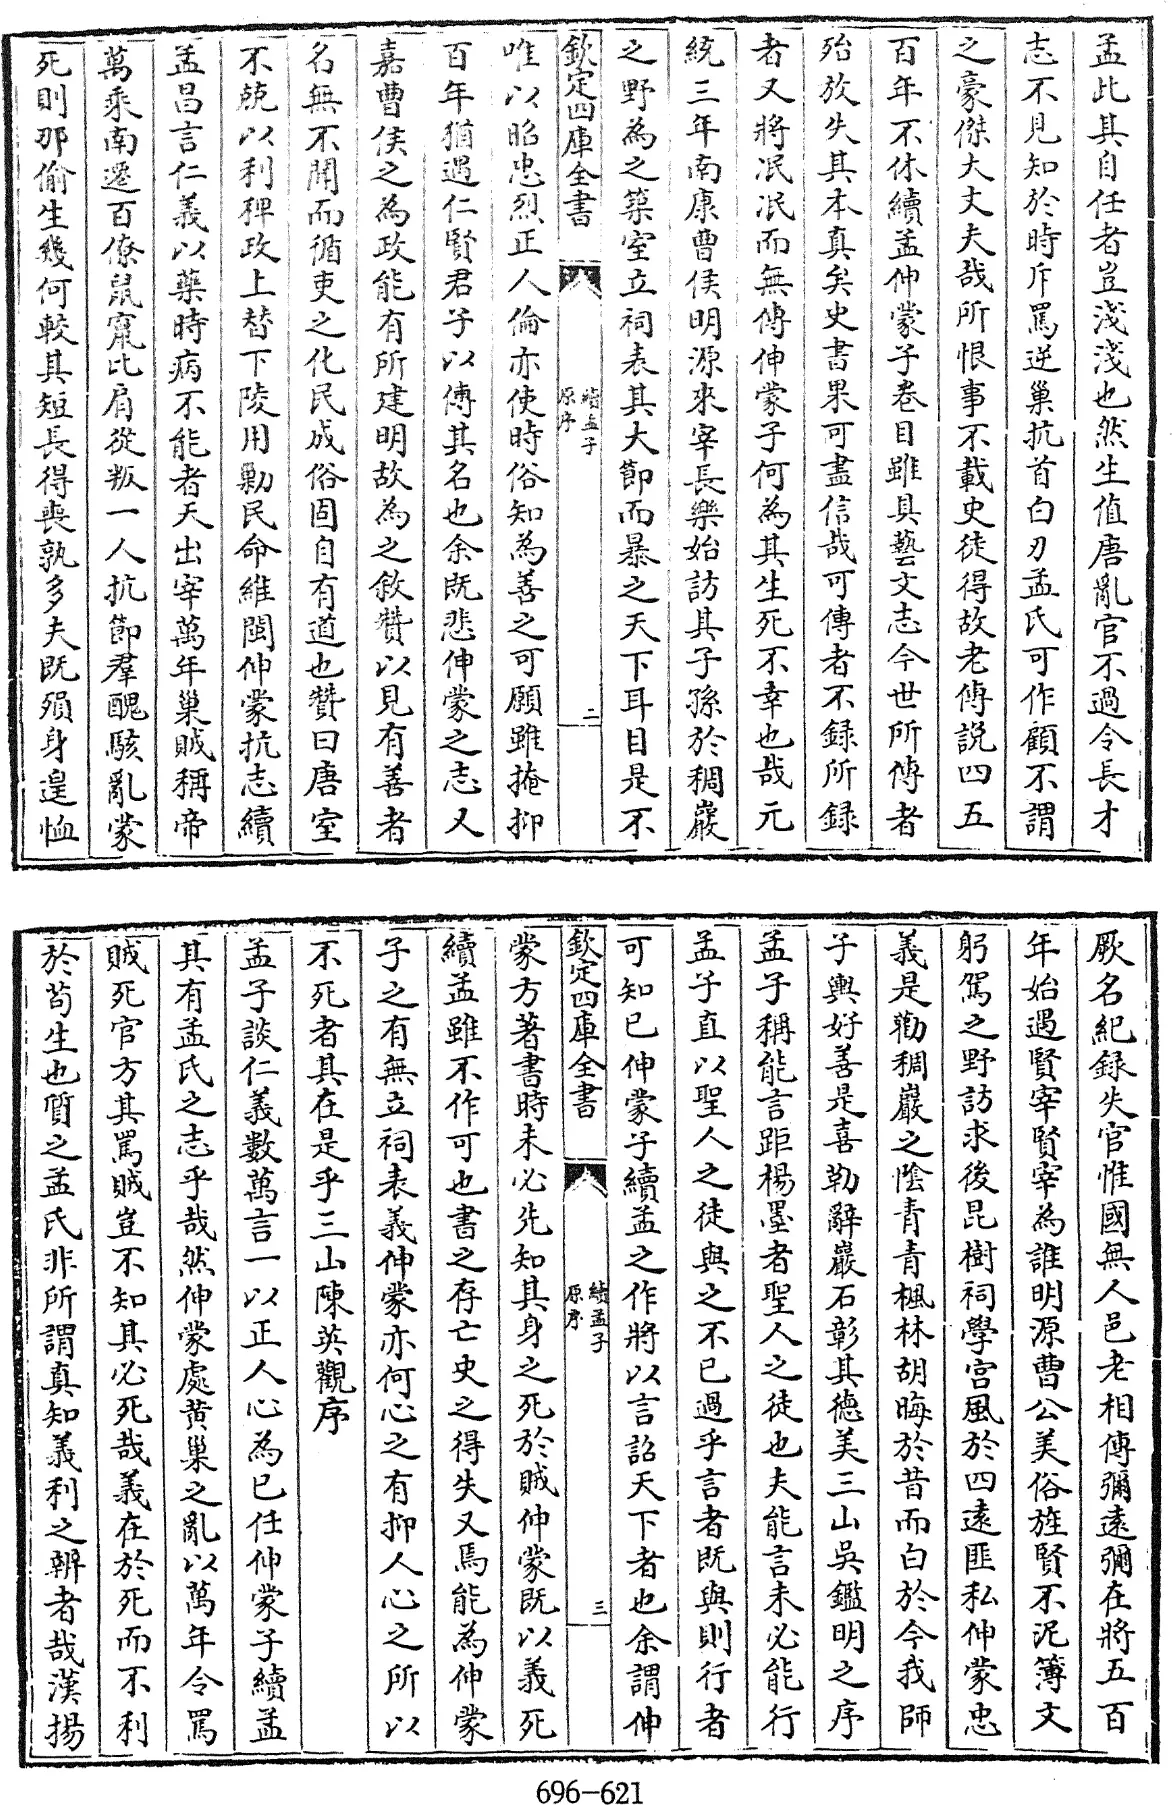 孟此其自任者豈淺淺也然生值唐亂官不過令長才
志不見知於時斥罵逆巢抗首白刃孟氏可作顧不謂
之豪傑大丈夫哉所恨事不載史徒得故老傳説四五
百年不休續孟伸蒙子卷目雖具藝文志今世所傳者
殆放失其本真矣史書果可盡信哉可傳者不録所録
者又將泯泯而無傳伸蒙子何為其生死不幸也哉元
統三年南康曹侯明源來宰長樂始訪其子孫於稠巖
之野為之築室立祠表其大節而暴之天下耳目是不
欽定四庫全書
續孟子
原序
二
唯以昭忠烈正人倫亦使時俗知為善之可願雖掩抑
百年猶遇仁賢君子以傳其名也余既悲伸蒙之志又
嘉曹侯之為政能有所建明故為之敘贊以見有善者
名無不聞而循吏之化民成俗固自有道也贊曰唐室
不兢以利稗政上替下陵用勦民命維閩伸蒙抗志續
孟昌言仁義以藥時病不能者天出宰萬年巢賊稱帝
萬乘南遷百僚鼠竄比肩從叛一人抗節羣醜駭亂蒙
死則那偷生幾何較其短長得喪孰多夫既殞身遑恤
厥名紀録失官惟國無人邑老相傳彌遠彌在將五百
年始遇賢宰賢宰為誰明源曹公美俗旌賢不泥簿文
躬駕之野訪求後昆樹祠學宫風於四遠匪私伸蒙忠
義是勸稠巖之隂青青楓林胡晦於昔而白於今我師
子輿好善是喜勒辭巖石彰其德美三山吳鑑明之序
孟子稱能言距楊墨者聖人之徒也夫能言未必能行
孟子直以聖人之徒與之不已過乎言者既與則行者
可知已伸蒙子續孟之作將以言詔天下者也余謂伸
欽定四庫全書
續孟子
原序
三
蒙方著書時未必先知其身之死於賊伸蒙既以義死
續孟雖不作可也書之存亡史之得失又焉能為伸蒙
子之有無立祠表義伸蒙亦何心之有抑人心之所以
不死者其在是乎三山陳英觀序
孟子談仁義數萬言一以正人心為已任伸蒙子續孟
其有孟氏之志乎哉然伸蒙處黄巢之亂以萬年令罵
賊死官方其罵賊豈不知其必死哉義在於死而不利
於苟生也質之孟氏非所謂真知義利之辨者哉漢揚
696-621